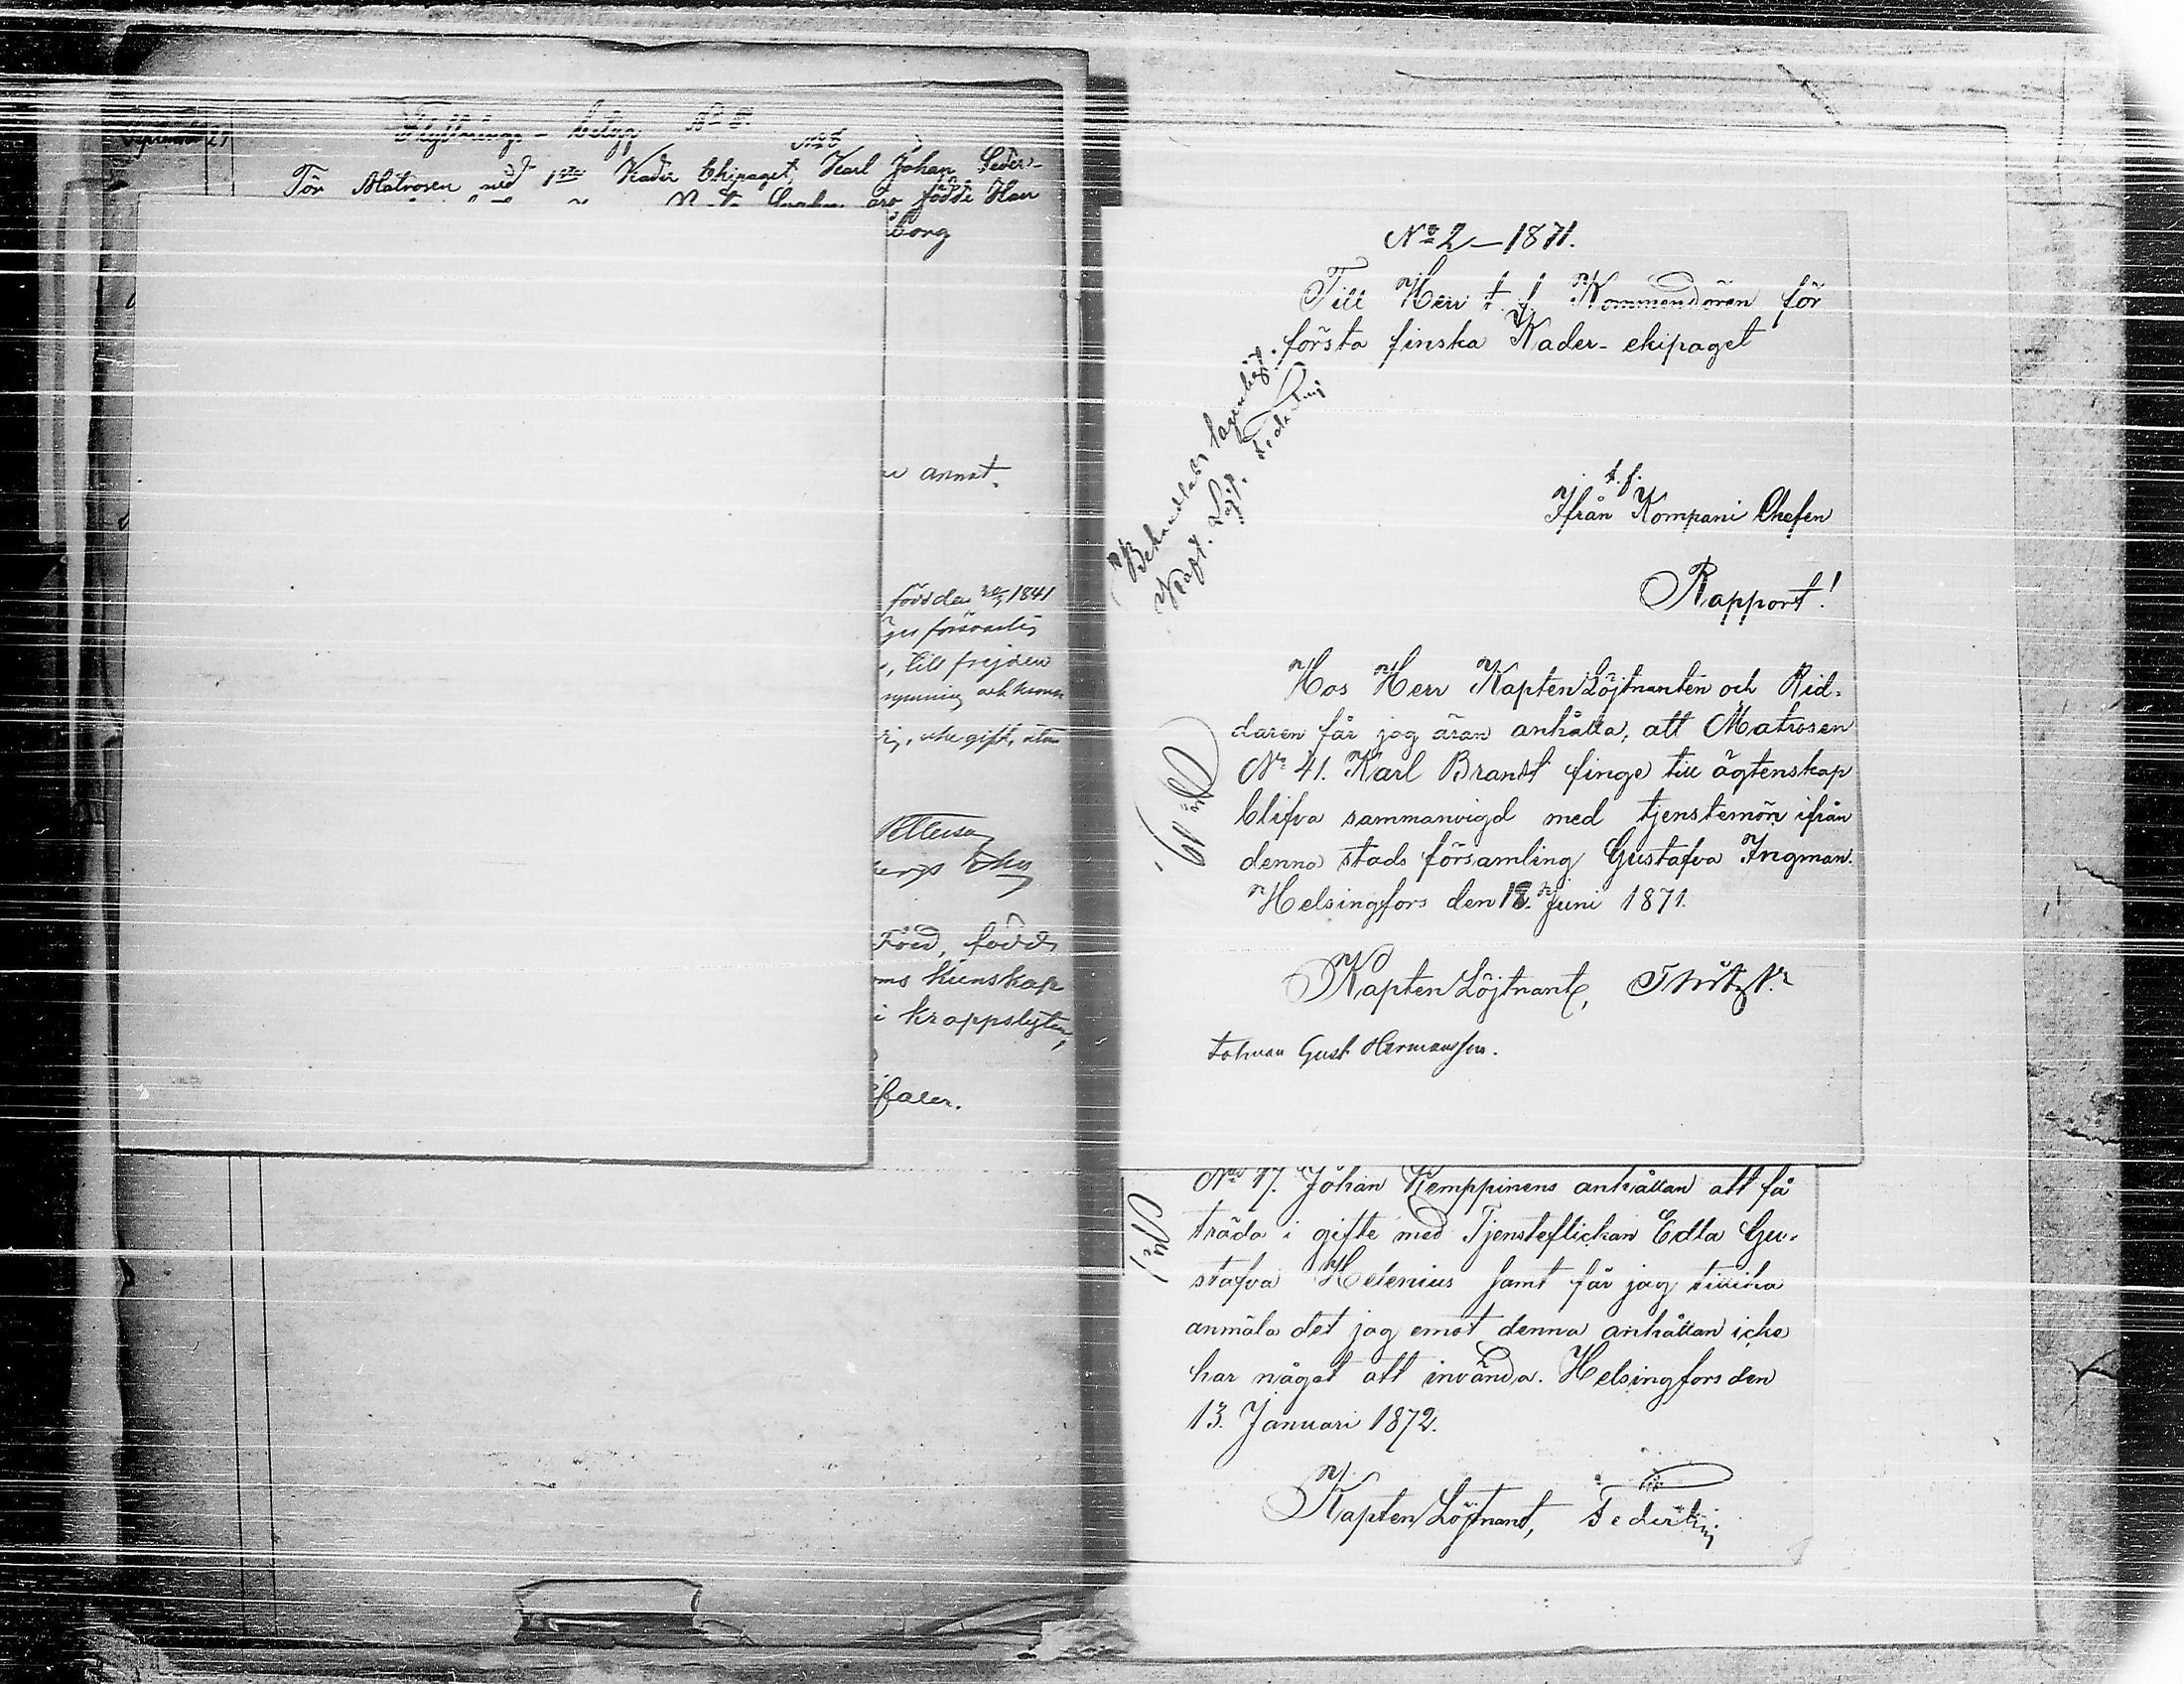 Flyttnings-betyg No 8.
För Matrosen med 1sta Kader Ekipaget, Karl Johan Seder-
äro födde Han
borg
annat.
född den 1841
till frejden
gift, utan
född
kunskap
i kroppslyten,
No 2 — 1871.
Till Herr t. f. Kommendören för
första finska Kader-ekipaget
Behandlades lagenligt.
Kapt. Löjt.
t. f.
Ifrån Kompani Chefen
Rapport!
Hos Herr Kapten Löjtnanten och Rid-
daren får jag äran anhålla, att Matrosen
No 41. Karl Brandt finge till ägtenskap
blifva sammanvigd med tjenstemön ifrån
denna stads församling Gustafva Ingman.
Helsingfors den 18. Juni 1871.
Kapten Löjtnant,
Tolvman Gust Hermansson.
No 19.
No 17. Johan Kemppinens anhållan att få
träda i gifte med Tjensteflickan Edla Gu-
stafva Helenius samt får jag tillika
anmäla det jag emot denna anhållan icke
har något att invända. Helsingfors den
13. Januari 1872.
Kapten Löjtnant,
No 1